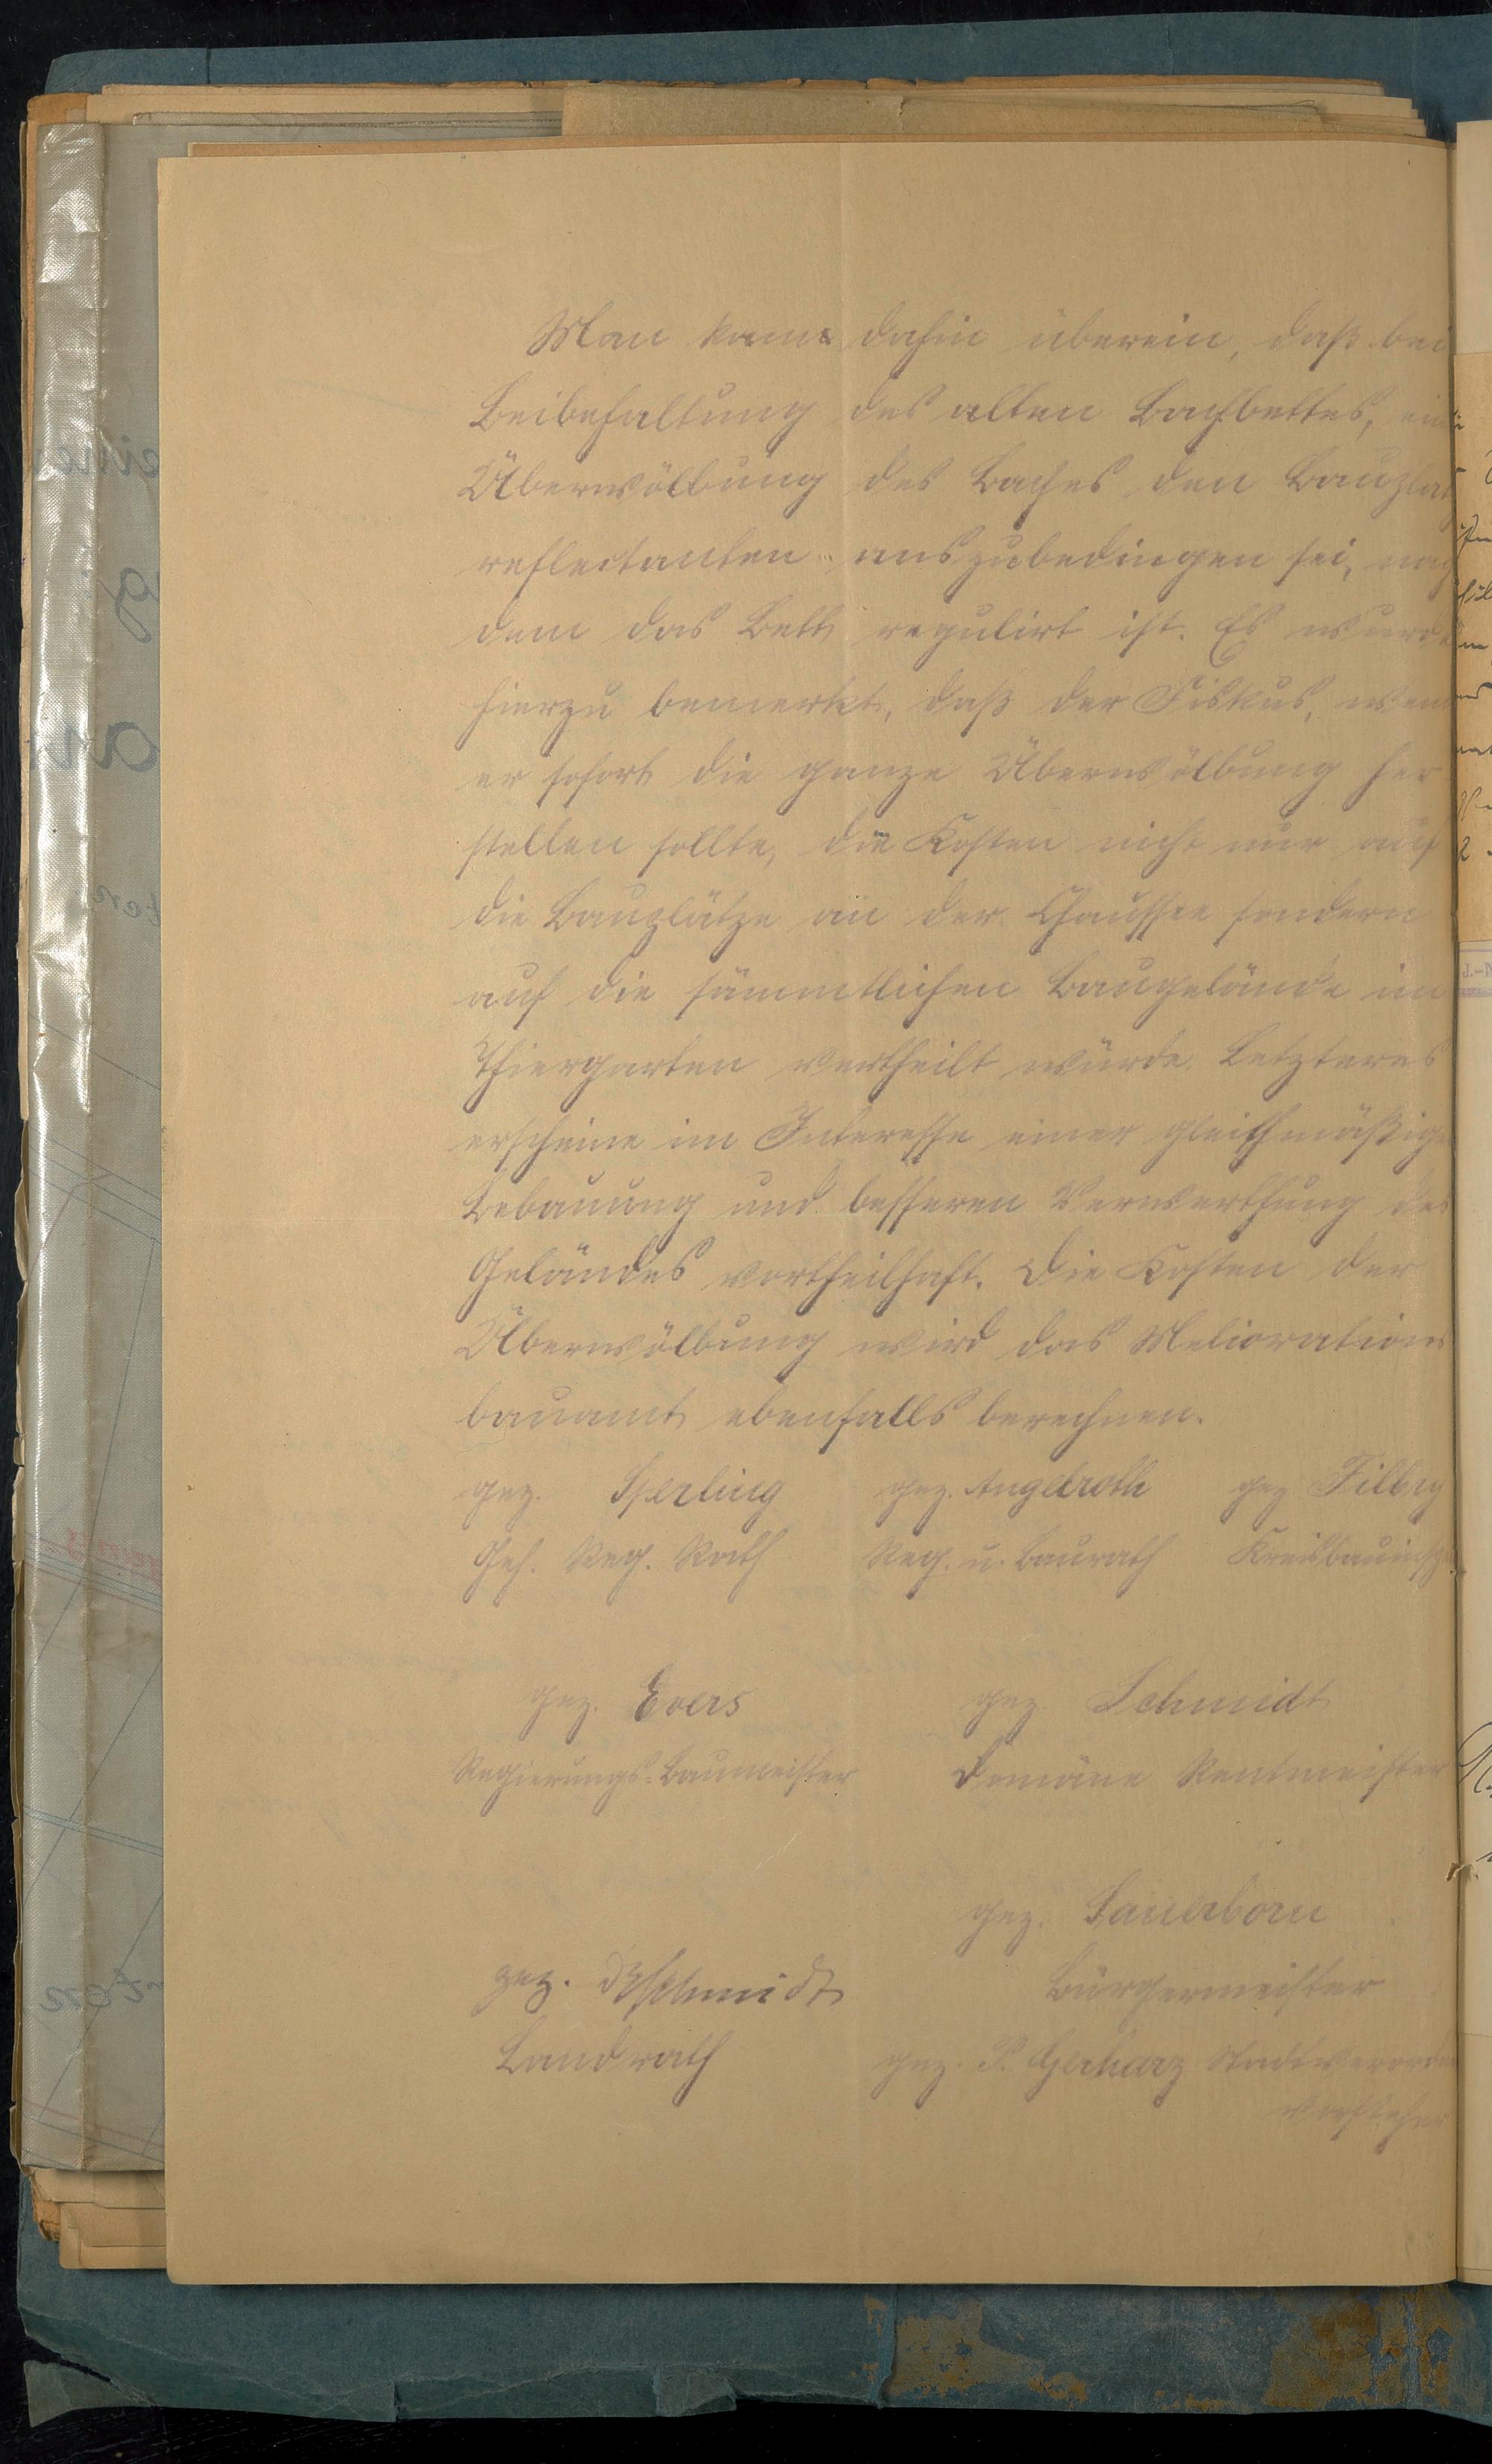 Man kam dahin überein, daß bei
Beibehaltung des alten Bachbettes, eine
Überwölbung des Baches den Bauplatz
reflectanten auszubedingen sei, nach
dem das Bett regulirt ist. Es wurde
hierzu bemerkt, daß der Fiskus, wenn
er sofort die ganze Überwölbung her
stellen sollte, die Kosten nicht nur auf
die Bauplätze an der Chaussee sondern
auf die sämmtlichen Baugelände im
Thiergarten vertheilt würde. Letzteres
erscheine im Interesse einer gleichmäßigen
Bebauung und besseren Verwerthung des
Geländes vortheilhaft. Die Kosten der
Überwölbung wird das Meliorations
bauamt ebenfalls berechnen.
gez. Sperling gez. Angelroth gez Filbry
Geh. Reg. Rath Reg. u. Baurath Kreisbauinsp
gez. Evers gez. Schmidt
Regierungs-Baumeister Domäne Rentmeister
gez. Sauerborn
gez. Schmidt Bürgermeister
Landrath gez. P. Gerharz Stadtverordn
vorsteher